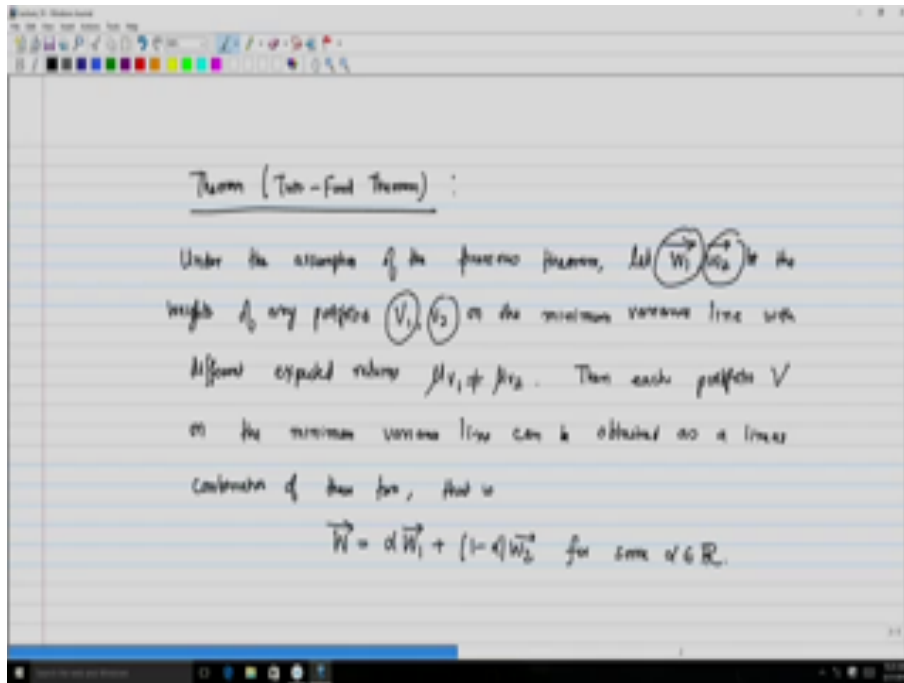 Theorem (Two-Fund Theorem) :
Under the assumption of the previous theorem, let \vec{w_1}, \vec{w_2} be the
weights of any portfolios V_1, V_2 on the minimum variance line with
different expected returns μ_{V_1} ≠ μ_{V_2}. Then each portfolio V
on the minimum variance line can be obtained as a linear
combination of these two, that is
\vec{W} = α \vec{W_1} + (1-α) \vec{W_2} for some α ∈ ℝ.